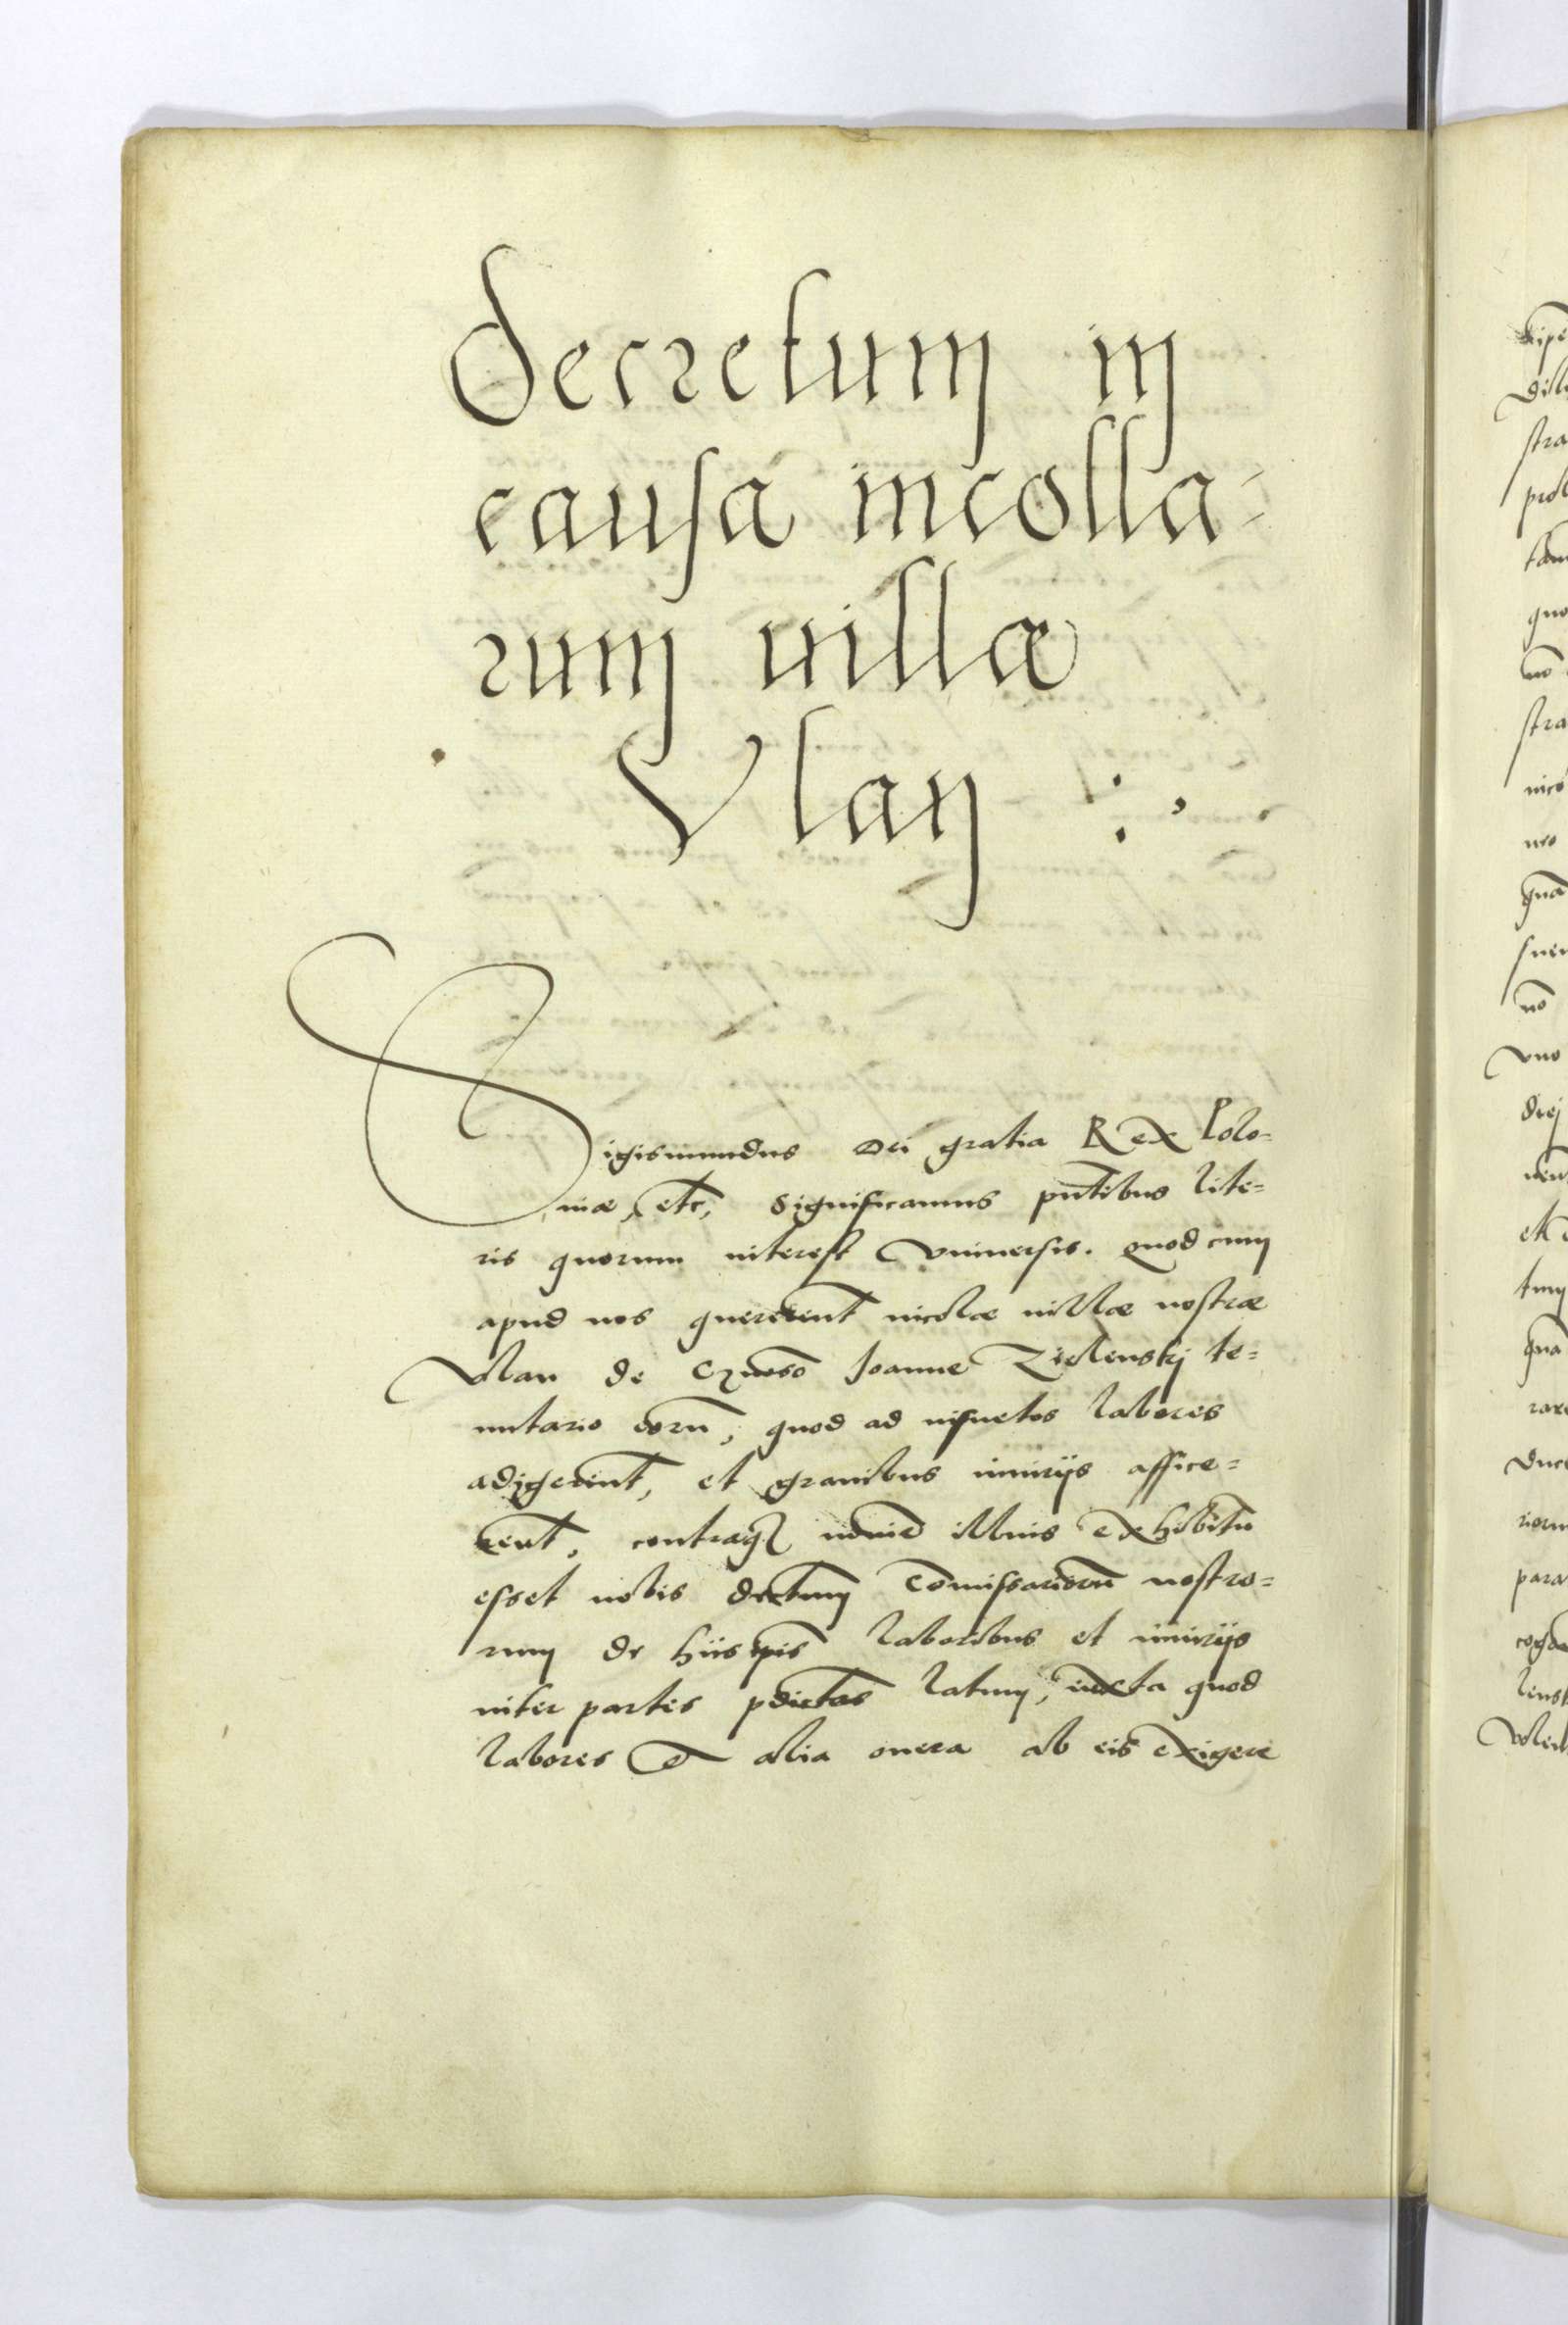 Decretum in
causa incolla-
rum uillæ
Vlan :,
Sigismundus Dei gratia Rex Polo-
niæ, etc, Significamus pntibus lite-
ris quorum interest Vniuersis. quod cum
apud nos quererent incolæ uillæ nostræ
Vlan de Joanne Zielenskj te-
nutario eorū, quod ad insuetos labores
adigerent, et grauibus iniurijs affice-
rent, contraq illius exhibitū
esset nobis dectum Comissariorū nostro-
rum de hiis ipis laboribus et iniurijs
inter partes pdictas latum, iuxta quod
labores et alia onera ab eis exigere